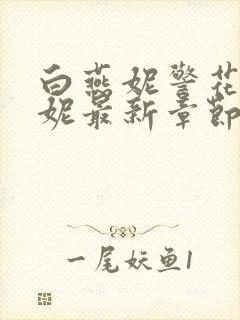 白燕妮警花
妮最新章节
一尾妖鱼1